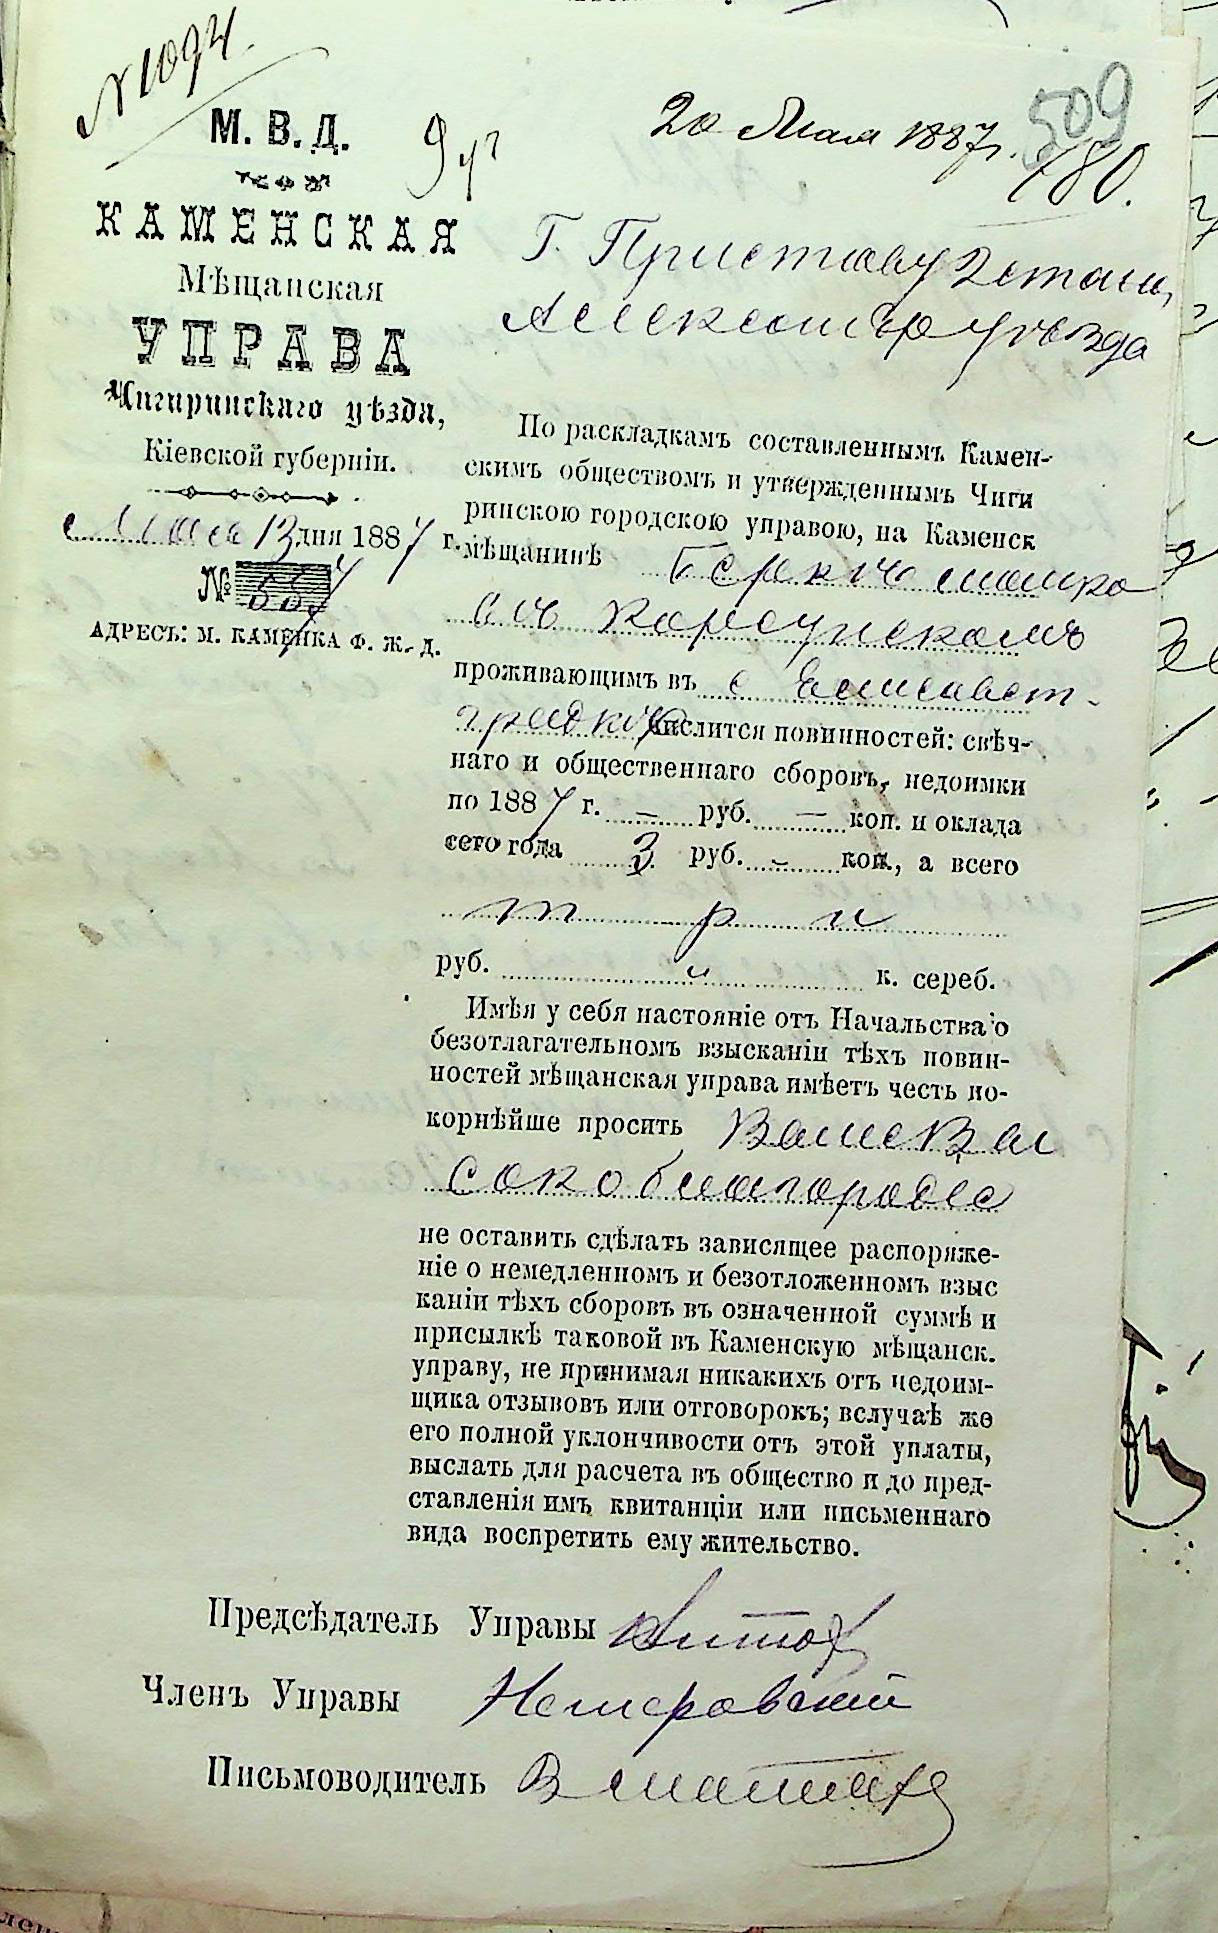 N 1094.
20 Мая 1887 г.
509
180.
М. В. Д.
КАМЕНСКАЯ
Мѣщанская
УПРАВА
Чигиринскаго уѣзда,
Кіевской губерніи.
Мая 13 дня 1887 г.
№ 557
АДРЕСЪ: М. КАМЕНКА Ф. Ж. Д.
Г. Приставу 2 стана
Александр уѣзда
По раскладкамъ составленнымъ Камен-
скимъ обществомъ и утвержденнымъ Чиги
ринскою городскою управою, на Каменск
мѣщанинѣ
Корсунскомъ
проживающимъ въ с Елисавет-
градкѣ числится повинностей: свѣч-
наго и общественнаго сборовъ, недоимки
по 1887 г. — руб. — коп. и оклада
сего года 3 руб. - коп., а всего
три
руб. " к. сереб.
Имѣя у себя настояніе отъ Начальства о
безотлагательномъ взысканіи тѣхъ повин-
ностей мѣщанская управа имѣетъ честь по-
корнѣйше просить Ваше Вы
сокоблагородіе
не оставить сдѣлать зависящее распоряже-
ніе о немедленномъ и безотложенномъ взыс
каніи тѣхъ сборовъ въ означенной суммѣ и
присылкѣ таковой въ Каменскую мѣщанск.
управу, не принимая никакихъ отъ недоим-
щика отзывовъ или отговорокъ; вслучаѣ же
его полной уклончивости отъ этой уплаты,
выслать для расчета въ общество и до пред-
ставленія имъ квитанціи или письменнаго
вида воспретить ему жительство.
Предсѣдатель Управы
Членъ Управы Немеровский
Письмоводитель